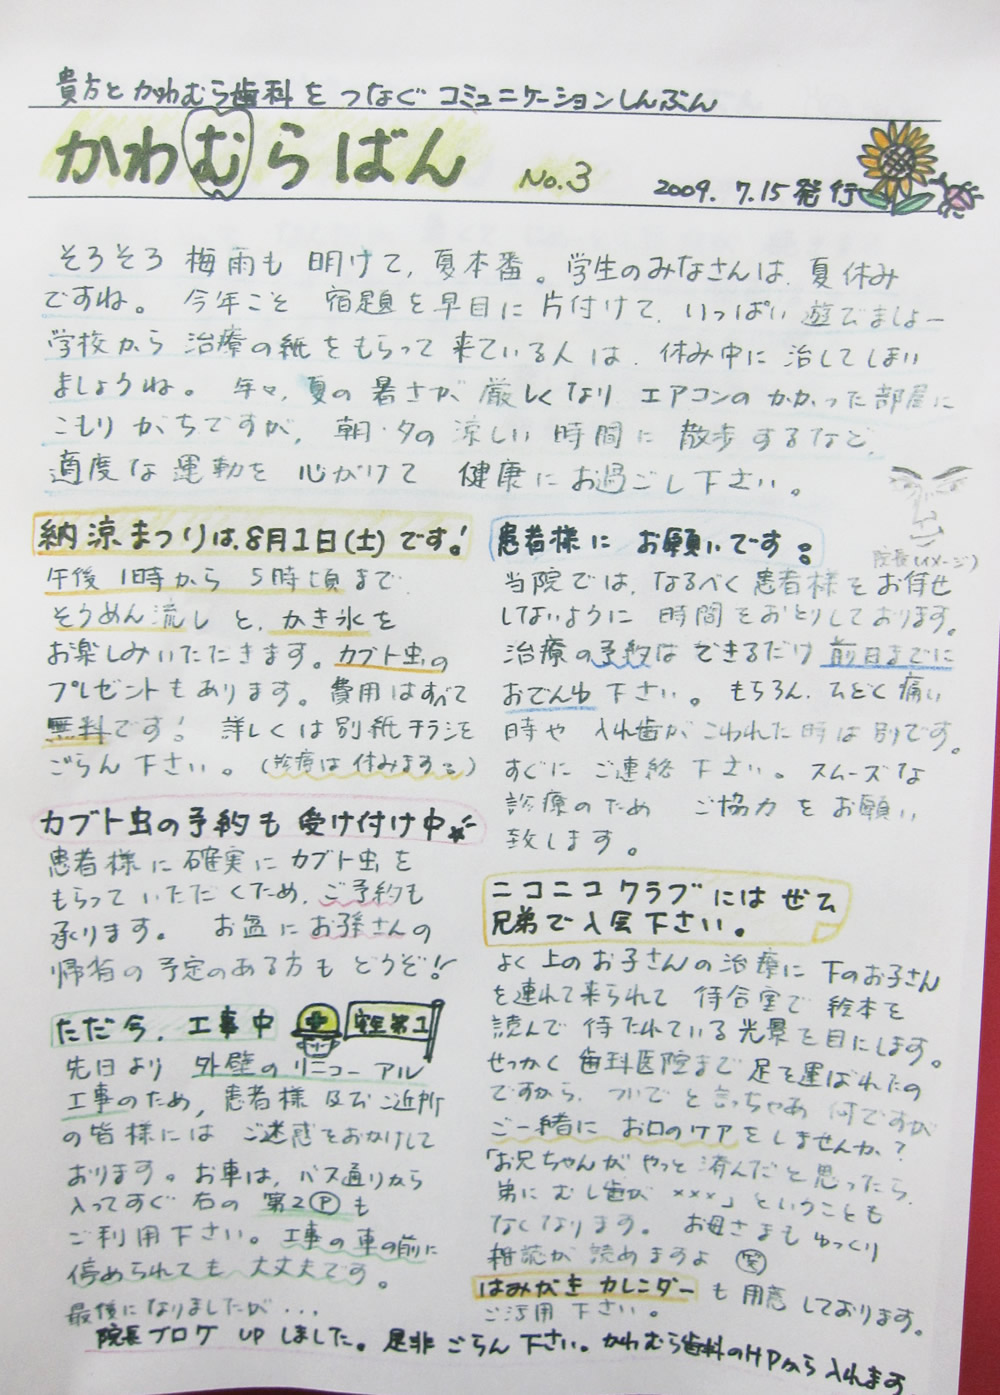 貴方とかわむら歯科をつなぐコミュニケーションしんぶん
かわむらばん No.3 2009.7.15発行
そろそろ梅雨も明けて、夏本番。学生のみなさんは、夏休み
ですね。今年こそ宿題を早目に片付けて、いっぱい遊びましょー
学校から治療の紙をもらって来ている人は、休み中に治してしまい
ましょうね。年々、夏の暑さが厳しくなり エアコンのかかった部屋に
こもりがちですが、朝・夕の涼しい時間に散歩するなど、
適度な運動を心がけて 健康にお過ごし下さい。
院長(イメージ)
納涼まつりは、8月1日(土)です!
午後1時から5時頃まで
そうめん流しと、かき氷を
お楽しみいただきます。カブト虫の
プレゼントもあります。費用はすべて
無料です! 詳しくは別紙チラシを
ごらん下さい。(診療は休みます)
カブト虫の予約も受け付け中
患者様に確実にカブト虫を
もらっていただくため、ご予約も
承ります。お盆にお孫さんの
帰省の予定のある方もどうぞ!
ただ今、工事中 安全第1
先日より外壁のリニューアル
工事のため、患者様及びご近所
の皆様にはご迷惑をおかけして
おります。お車は、バス通りから
入ってすぐ右の第2Ⓟも
ご利用下さい。工事の車の前に
停められても大丈夫です。
患者様にお願いです。
当院では、なるべく患者様をお待せ
しないように時間をおとりしております。
治療の予約はできるだけ前日までに
おでんわ下さい。もちろん、ひどく痛い
時や入れ歯がこわれた時は別です。
すぐにご連絡下さい。スムーズな
診療のため ご協力をお願い
致します。
ニコニコクラブにはぜひ
兄弟で入会下さい。
よく上のお子さんの治療に下のお子さん
を連れて来られて待合室で絵本を
読んで待たれている光景を目にします。
せっかく歯科医院まで足を運ばれたの
ですから、ついでと言っちゃあ何ですが
ご一緒にお口のケアをしませんか?
「お兄ちゃんがやっと済んだと思ったら、
弟にむし歯が×××」ということも
なくなります。お母さまもゆっくり
雑誌が読めますよ㊗
はみがきカレンダーも用意しております。
ご活用下さい。
最後になりましたが...
院長ブログ UPしました。是非ごらん下さい。かわむら歯科のHPから入れます